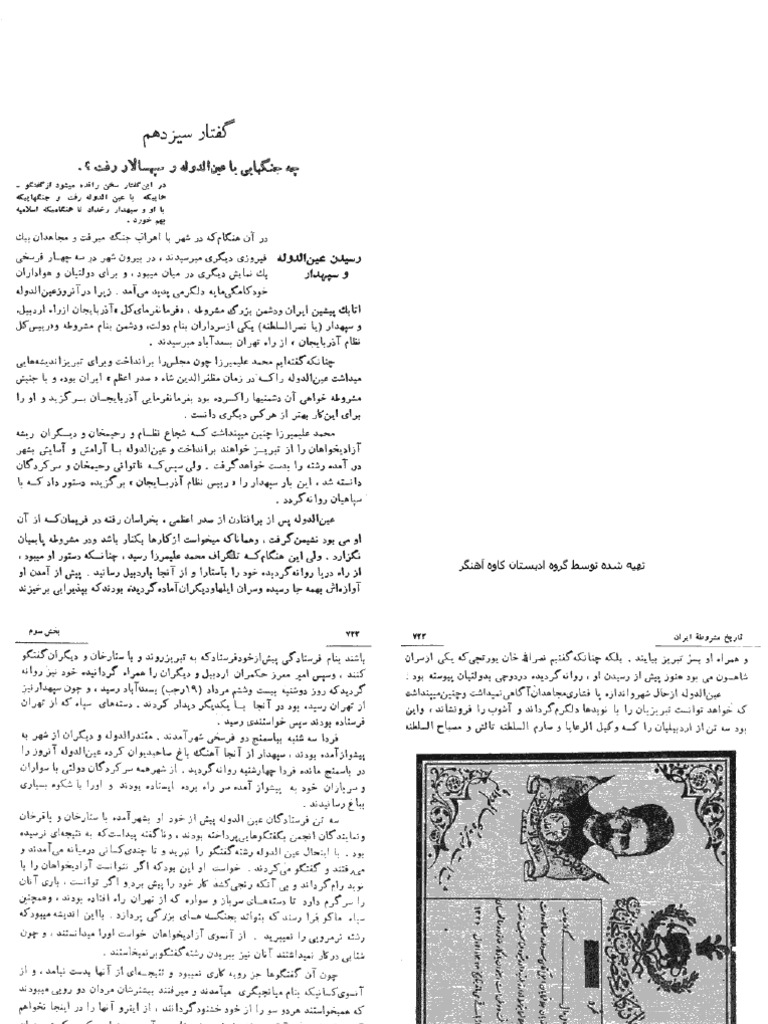 گفتار سیزدهم
چه جنگهایی با عین‌الدوله و سپهسالار رفت ؟.
در این گفتار سخن رانده میشود از گفتگو ـ
هاییکه با عین الدوله رفت و جنگهاییکه
با او و سپهدار رخداد تا هنگامیکه اسلامیه
بهم خورد .
در آن هنگام که در شهر با اهراب جنگ میرفت و مجاهدان بیک
رسیدن عین‌الدوله
و سپهدار
فیروزی دیگری میرسیدند ، در بیرون شهر در سه چهار فرسخی
یک نمایش دیگری در میان میبود ، و برای دولتیان و هواداران
خودکامگی مایه دلگرمی پدید می‌آمد . زیرا در آنروز عین‌الدوله
اتابک پیشین ایران و دشمن بزرگ مشروطه ، «فرمانفرمای کل» آذربایجان از راه اردبیل،
و سپهدار (یا نصرالسلطنه) یکی از سرداران بنام دولت، و دشمن بنام مشروطه و «رییس کل
نظام آذربایجان» از راه تهران بسعدآباد میرسیدند .
چنانکه گفته‌ایم محمد علیمیرزا چون مجلس را برانداخت و برای تبریز اندیشه‌هایی
میداشت عین‌الدوله را که در زمان مظفرالدین شاه «صدر اعظم» ایران بوده و با جنبش
مشروطه خواهی آن دشمنیها را کرده بود بفرمانفرمایی آذربایجان برگزید و او را
برای این کار بهتر از هرکس دیگری دانست .
محمد علیمیرزا چنین میپنداشت که شجاع نظام و رحیمخان و دیگران ریشه
آزادیخواهان را از تبریز خواهند برانداخت و عین‌الدوله با آرامش و آسایش بشهر
در آمده رشته را بدست خواهد گرفت . ولی سپس که ناتوانی رحیمخان و سرکردگان
دانسته شد ، این بار سپهدار را «رییس نظام آذربایجان» برگزیده دستور داد که با
سپاهیان روانه گردد .
عین‌الدوله پس از برافتادن از صدر اعظمی ، بخراسان رفته در فریمان که از آن
او می بود نشیمن گرفت ، و همانا که میخواست از کارها بکنار باشد و در مشروطه پابمیان
نگزارد . ولی این هنگام که تلگراف محمد علیمرزا رسید ، چنانکه دستور او میبود ،
از راه دریا روانه گردیده خود را بآستارا و از آنجا باردبیل رسانید . پیش از آمدن او
آوازه‌اش بهمه جا رسیده و سران ایلها و دیگران آماده گردیده بودند که بپذیرایی برخیزند
تهیه شده توسط گروه ادبستان کاوه آهنگر
تاریخ مشروطهٔ ایران
۷۲۲
و همراه او بسر تبریز بیایند . بلکه چنانکه گفتیم نصرالله خان یورتچی که یکی از سران
شاهسون می بود هنوز پیش از رسیدن او ، روانه گردیده در دوچی بدولتیان پیوسته بود .
عین‌الدوله از حال شهر و اندازه پا فشاری مجاهدان آگاهی نمیداشت و چنین میپنداشت
که خواهد توانست تبریزیان را با نویدها دلگرم گرداند و آشوب را فرونشاند ، و این
بود سه تن از اردبیلیان را که وکیل الرعایا و صارم السلطنه تالش و مصباح السلطنه
بخش سوم
۷۲۳
باشند بنام فرستادگی پیش از خود فرستاد که به تبریز روند و با ستارخان و دیگران گفتگو
کنند ، و سپس امیر معزز حکمران اردبیل و دیگران را همراه گردانیده خود نیز روانه
گردید که روز دوشنبه بیست و ششم مرداد (۱۹ رجب) بسعدآباد رسید ، و چون سپهدار نیز
از تهران رسیده بود در آنجا با یکدیگر دیدار کردند . دسته‌های سپاه که از تهران
فرستاده بودند سپس خواستندی رسید .
فردا سه شنبه بباسمنج دو فرسخی شهر آمدند . مقتدرالدوله و دیگران از شهر به
پیشواز آمده بودند ، سپهدار از آنجا آهنگ باغ صاحبدیوان کرده عین‌الدوله آنروز را
در باسمنج مانده فردا چهارشنبه روانه گردید . از شهر همه سرکردگان دولتی با سواران
و سربازان خود به پیشواز آمده سر راه برده ایستاده بودند و او را با شکوه بسیاری
بباغ رسانیدند .
سه تن فرستادگان عین الدوله پیش از خود او بشهر آمده با ستارخان و باقرخان
و نمایندگان انجمن بگفتگوهایی پرداخته بودند ، و ناگفته پیداست که به نتیجه‌ای نرسیده
بود . با اینحال عین الدوله رشته گفتگو را نبرید و تا چندی کسانی در میانه می‌آمدند و
میرفتند و گفتگو میکردند . خواست او این بود که اگر توانست آزادیخواهان را با
نوید رام گرداند و بی آنکه رنجی کشد کار خود را پیش برد و اگر نتوانست ، باری آنان
را سرگرم دارد تا دسته‌های سرباز و سواره که از تهران راه افتاده بودند ، و همچنین
سپاه ماکو فرا رسند که بتواند بجنگهای بزرگی پردازد . با این اندیشه میبود که
رشته نرمرویی را نمیبرید . از آنسوی آزادیخواهان خواست او را میدانستند ، و چون
شتابی در کار نمیداشتند آنان نیز ببریدن رشته گفتگو برنمیخاستند .
چون آن گفتگوها جز رویه کاری نمیبود و نتیجه‌ای از آنها بدست نیامد ، و از
آنسوی کسانیکه بنام میانجیگری میآمدند و میرفتند بیشترشان مردان دو رویی میبودند
که همیخواستند هر دو سو را از خود خشنود گردانند ، از اینرو آنها را در اینجا نخواهم